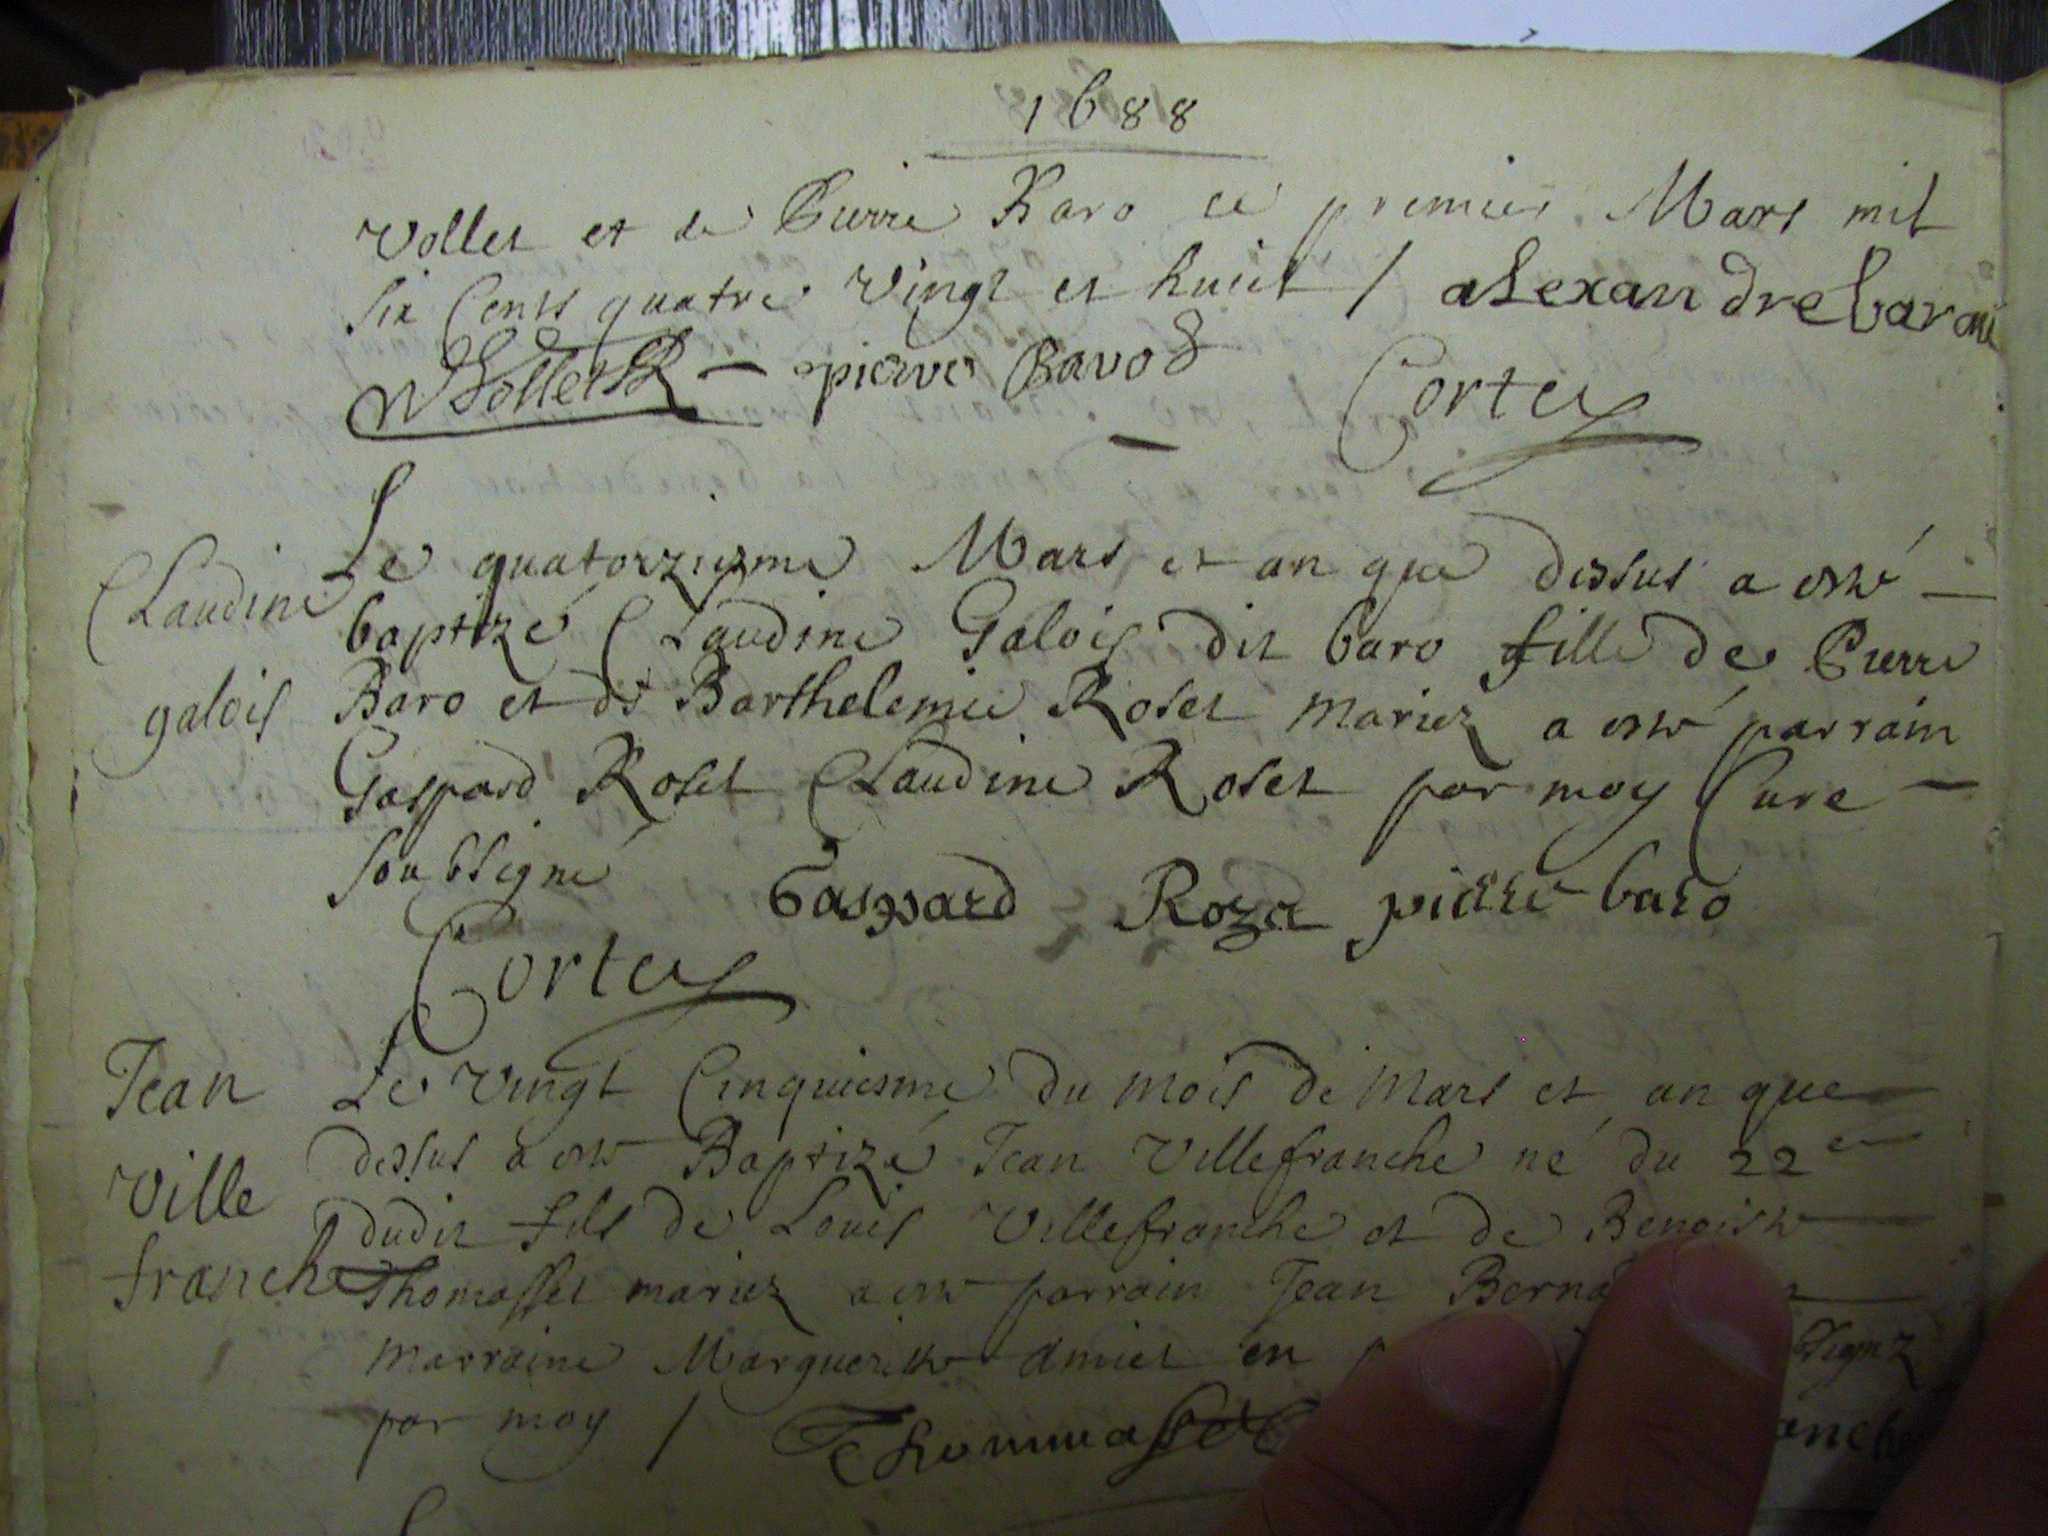 1688
Vollet et de Pierre Baro ce premier Mars mil
six Cents quatre Vingt et huict / alexandre baroni
Vollet — pierre Baro
Cortey
Claudine
galois
Le quatorziesme Mars et an que dessus a esté —
baptizé Claudine Galois dit baro fille de Pierre
Baro et de Barthelemie Roset mariez a esté parrain
Gaspard Roset Claudine Roset par moy Cure —
soubsigné
Gaspard Roze pierre baro
Cortey
Jean
Ville
franche
Le Vingt Cinquiesme du mois de Mars et an que
dessus a esté Baptizé Jean Villefranche né du 22e
dudit fils de Louis Villefranche et de Benoiste
Thomasset mariez a esté parrain Jean
marraine Marguerite amiet en
par moy / Thommasset